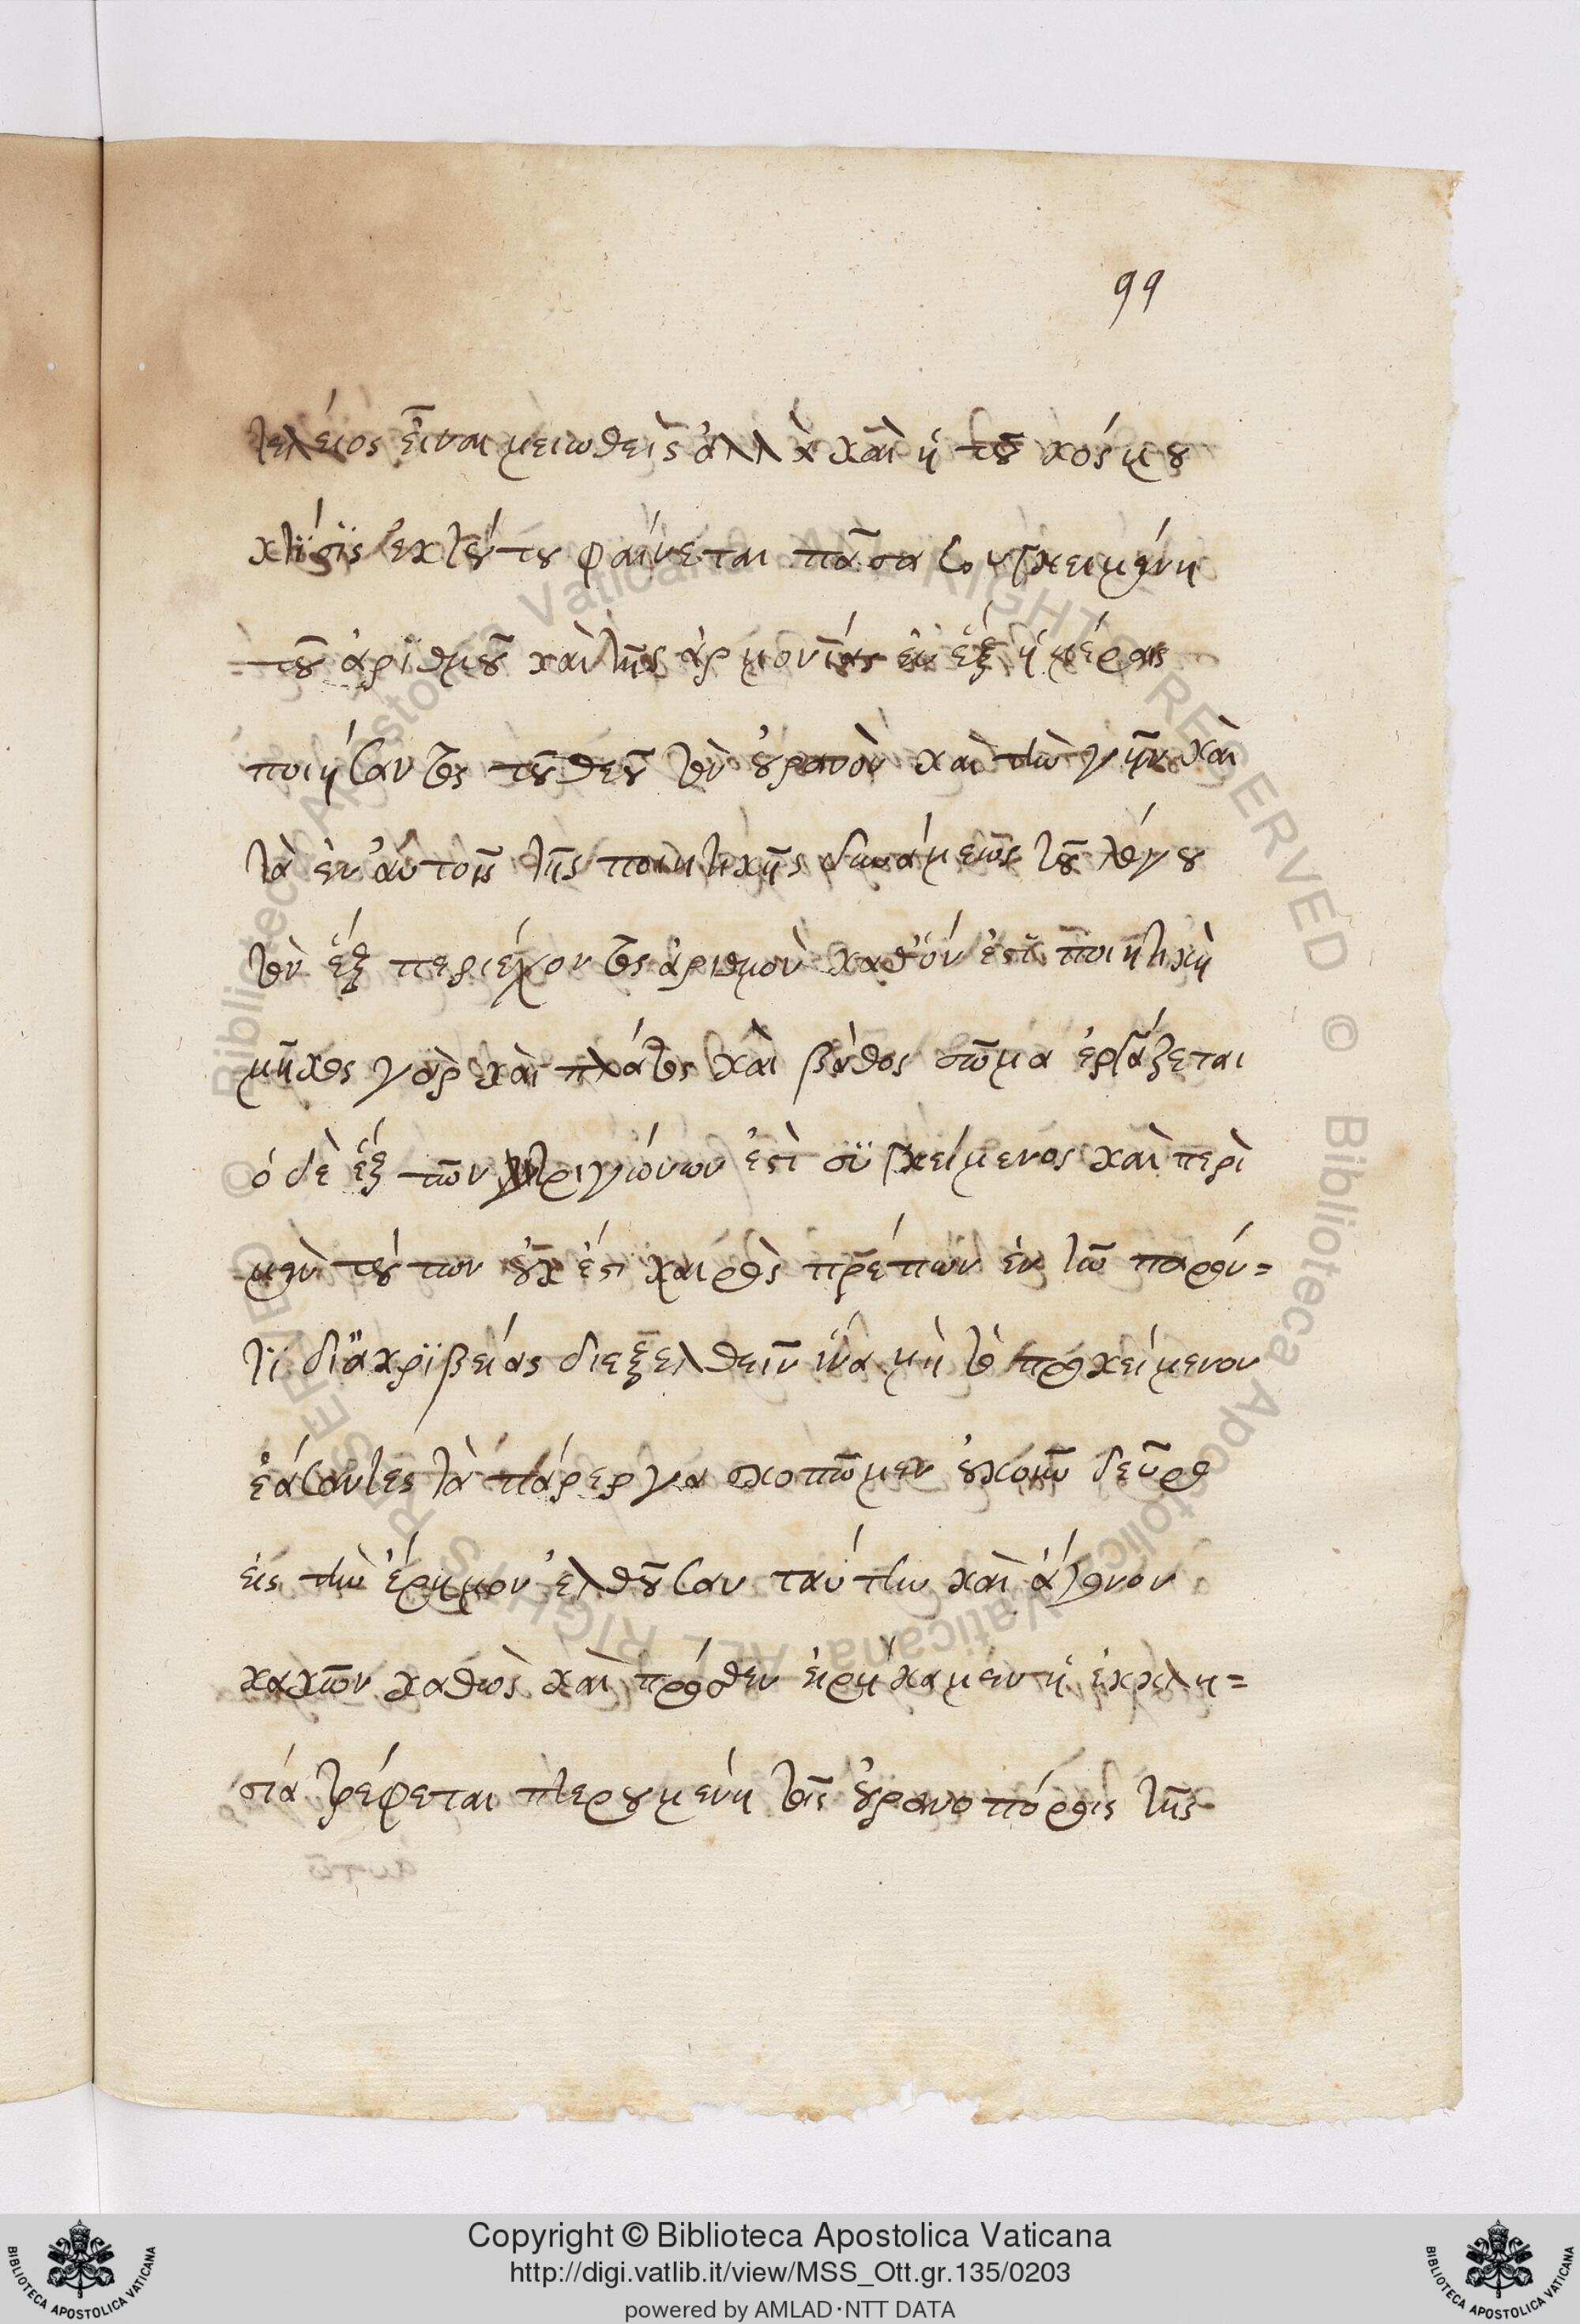 99
τελείος εἶναι μειωθεὶς ἀλλὰ καὶ ἡ τοῦ κόσμου
κτίσϊς ἐκ τούτου φαίνεται πᾶσα συγκειμένη
τοῦ ἀριθμοῦ καὶ τῆς ἁρμονΐας ἐν ἓξ ἡμέραις
ποιήσαντος τοῦ θεοῦ τὸν οὐρανὸν καὶ τὴν γῆν καὶ
τὰ ἐν αὐτοῖς τῆς ποιητικῆς δυνάμεως τοῦ λόγου
τὸν ἓξ περιέχοντος ἀριθμὸν καθ' ὅν ἐστι ποιητικὴ
μῆκος γὰρ καὶ πλάτος καὶ βάθος σῶμα ἐργάζεται
ὁ δὲ ἓξ τῶν τριγώνων ἐστὶ συγκείμενος καὶ περὶ
μὲν τούτων οὐκ ἔστι καιρὸς πρέπων ἐν τῷ παρόν=
τϊ δι' ἀκρϊβείας διεξελθεῖν ἵνα μὴ τὸ προκείμενον
ἐάσαντες τὰ πάρεργα σκοπῶμεν οὐκοῦν δεῦρο
εἰς τὴν ἔρημον ἐλθοῦσαν ταύτην καὶ ἄγονον
κακῶν καθὼς καὶ πρόσθεν εἰρήκαμεν ἡ ἐκκλη=
σία τρέφεται πτερουμένη τοῖς οὐρανοπόροις τῆς
Copyright © Biblioteca Apostolica Vaticana
http://digi.vatlib.it/view/MSS_Ott.gr.135/0203
powered by AMLAD·NTT DATA
BIBLIOTECA APOSTOLICA VATICANA
BIBLIOTECA APOSTOLICA VATICANA
© Biblioteca Apostolica Vaticana ALL RIGHTS RESERVED © Biblioteca Apostolica Vaticana ALL RIGHTS RESERVED